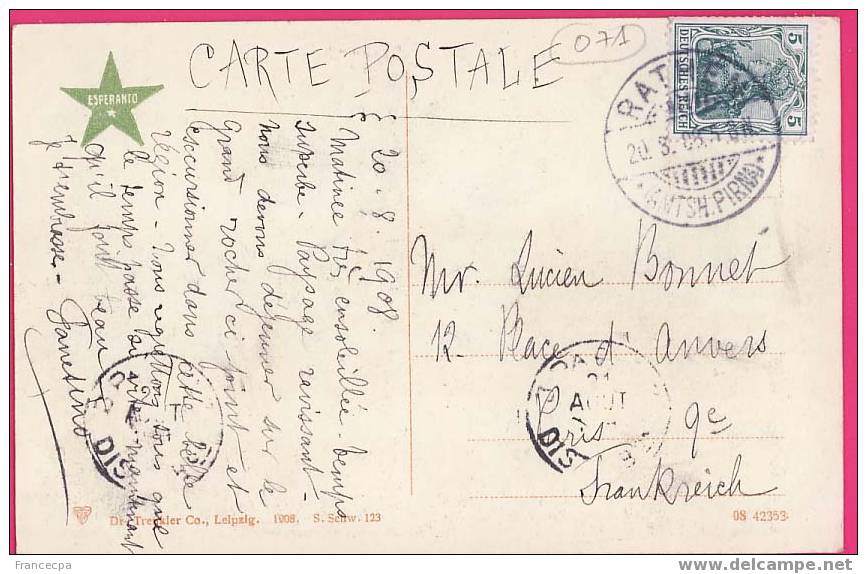 CARTE POSTALE
071
ESPERANTO
DEUTSCHES REICH
5
5
RAT
20. 8. 08.
(AMTSH. PIRNA)
20. 8. 1908.
Matinée très ensoleillée - temps
superbe - Paysage ravissant -
nous devons déjeuner sur le
grand rocher ci joint et
excursionner dans cette belle
région - nous regrettons tous que
le temps passe si vite maintenant
qu'il fait beau
Je t'embrasse -
Mr. Lucien Bonnet
12. Place d'Anvers
Paris 9e
Frankreich
21
AOUT
DIS
DIS
Dr. Trenkler Co., Leipzig. 1908. S. Schw. 123
08 42353
Francecpa
www.delcampe.net